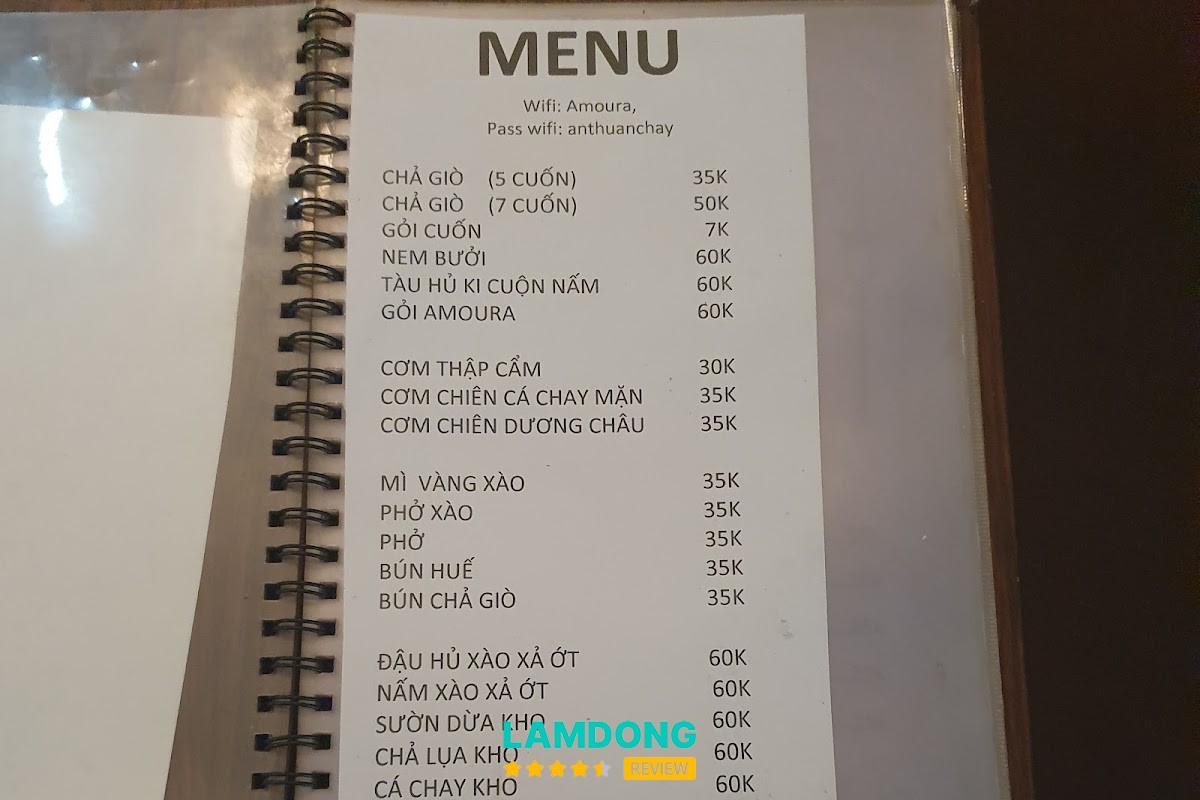 MENU
Wifi: Amoura,
Pass wifi: anthuanchay
CHẢ GIÒ (5 CUỐN) 35K
CHẢ GIÒ (7 CUỐN) 50K
GỎI CUỐN 7K
NEM BƯỞI 60K
TÀU HỦ KI CUỘN NẤM 60K
GỎI AMOURA 60K
CƠM THẬP CẨM 30K
CƠM CHIÊN CÁ CHAY MẶN 35K
CƠM CHIÊN DƯƠNG CHÂU 35K
MÌ VÀNG XÀO 35K
PHỞ XÀO 35K
PHỞ 35K
BÚN HUẾ 35K
BÚN CHẢ GIÒ 35K
ĐẬU HỦ XÀO XẢ ỚT 60K
NẤM XÀO XẢ ỚT 60K
SƯỜN DỪA KHO 60K
CHẢ LỤA KHO 60K
CÁ CHAY KHO 60K
LAMDONG
REVIEW